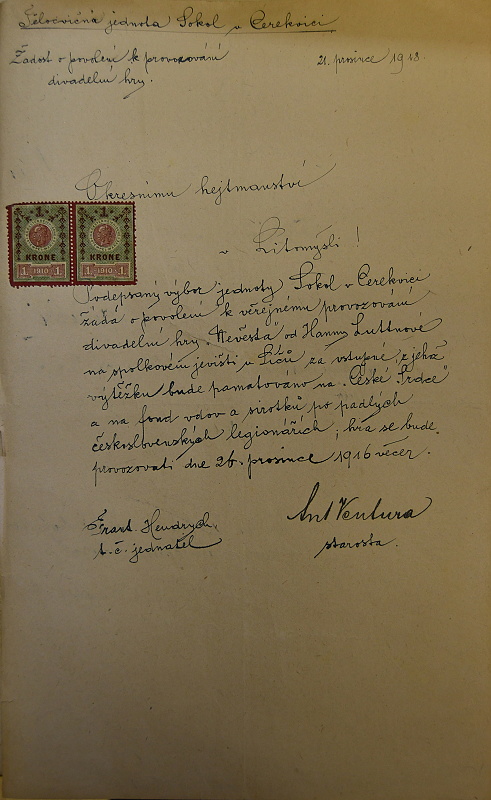 Tělocvičná jednota Sokol v Cerekvici
Žádost o povolení k provozování
divadelní hry.
21. prosince 1918.
Okresnímu hejtmanství
v Litomyšli !
1
1
KRONE
KRONE
1 1910 1
1 1910 1
Podepsaný výbor jednoty Sokol v Cerekvici
žádá o povolení k veřejnému provozování
divadelní hry „Nevěsta" od Hanny Luttnové
na spolkovém jevišti u Šiců za vstupné z jehož
výtěžku bude pamatováno na „České Srdce"
a na fond vdov a sirotků po padlých
československých legionářích; hra se bude
provozovati dne 26. prosince 1916 večer.
Frant. Hendrych,
t. č. jednatel
Ant Ventura
starosta.